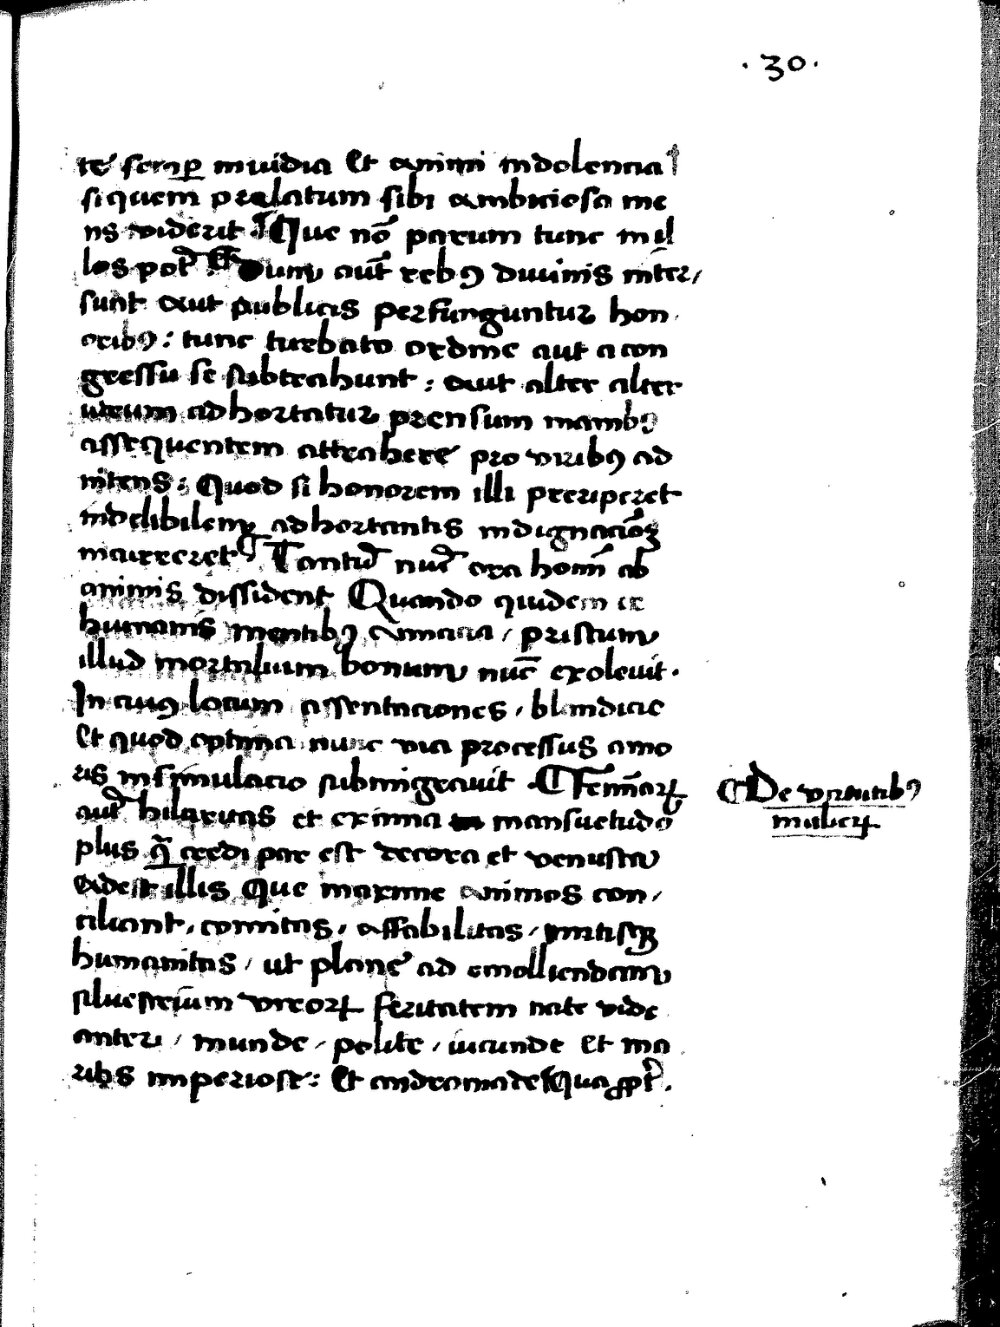 · 30 ·
te semꝑ inuidia et animi indolencia
si quem prelatum sibi ambiciosa me
ns viderit Que nō parum tunc in il
los pot Dum aut̄ rebꝰ diuinis inter/
sunt aut publicis perfunguntur hon
oribꝰ: tunc turbato ordine aut a con
gressu se subtrahunt: aut alter alter
utrum adhortatur prensum manibꝰ
assequentem attrahere pro viribꝰ ad
nitens: Quod si honorem illi preriperet
indelibilem adhortantis indignacōeꝫ
incurreret Tantū nūc ora homī ab
animis dissident Quando quidem
humanis mentibꝰ amicicia / pristinum
illud mortalium bonum nūc exoleuit.
In cuiꝰ locum assentaciones, blandicie
et quod optima nunc via processus amo
ris insimulacio submigrauit. Feminaꝝ
aut̄ hilaritas et eximia mansuetudo
plus q̄ credi par est decora et venusta
adest illis que maxime animos con/
ciliant, comitas, affabilitas, mitisqꝫ
humanitas / ut plane ad emolliendam
siluestrium viroꝝ feritatem nate vide
antur / munde / polite / iucunde et ma
ribs imperiose: Et andromade Quaꝓpt̄.
De virtutibꝰ
mulieꝝ